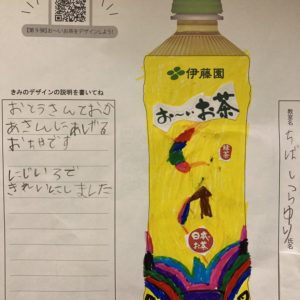 【第9回】お〜いお茶をデザインしよう!
きみのデザインの説明を書いてね
おとうさんておか
あさんにあげる
お茶です
にじいろで
きれいにしました
伊藤園
お〜いお茶
緑茶
日本の
お茶
教室名
氏名